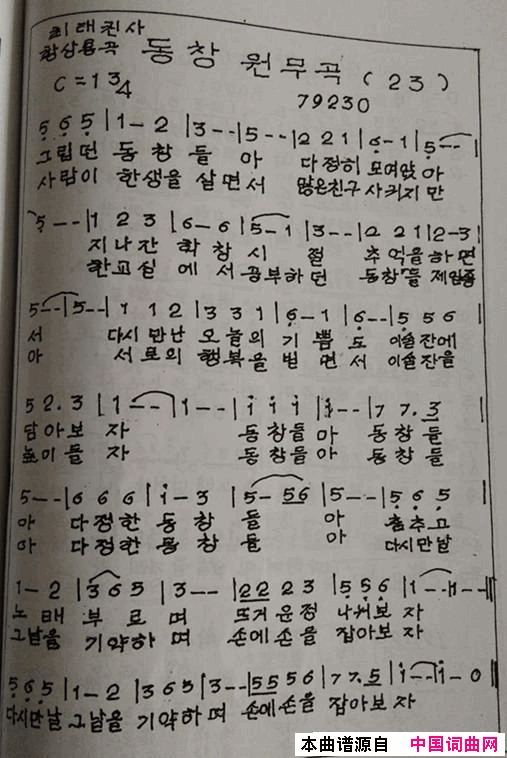 최태진사
황상용곡 동창 원무곡 (23)
C=1 3/4 79230
5 6 5 | 1 - 2 | 3 - - | 5 - - | 2 2 1 | 6 - 1 | 5 - -
그립던 동창들 아 다정히 모여앉아
사람이 한생을 살면서 많은친구 사귀지만
5 - - | 1 2 3 | 6 - 6 | 5 - 1 | 3 - - | 2 2 1 | 2 - 3 |
지나간 학창시절 추억을하면
한교실에서공부하던 동창들 제일좋
5 - - | 5 - - | 1 1 2 | 3 3 1 | 6 - 1 | 6 - - | 5 5 6
서 다시만난 오늘의 기쁨도 이술잔에
아 서로의 행복을 빌면서 이술잔을
5 2. 3 | 1 - - | 1 - - | i i i | i - - | 7 7. 3 |
담아보자 동창들아 동창들
높이들자 동창들아 동창들
5 - - | 6 6 6 | i - 3 | 5 - 56 | 5 - - | 5 6 5 |
아 다정한 동창들 아 춤추고
아 다정한 동창들 아 다시만날
1 - 2 | 3 6 5 | 3 - - | 22 2 3 | 5 5 6 | 1 - - | 1 - - ||
노래부르며 뜨거운정 나눠보자
그날을 기약하며 손에손을 잡아보자
5 6 5 | 1 - 2 | 3 6 5 | 3 - - | 55 5 6 | 7 7. 5 | i - - | i - 0 ||
다시만날 그날을 기약하며 손에손을 잡아보자
本曲谱源自 中国词曲网